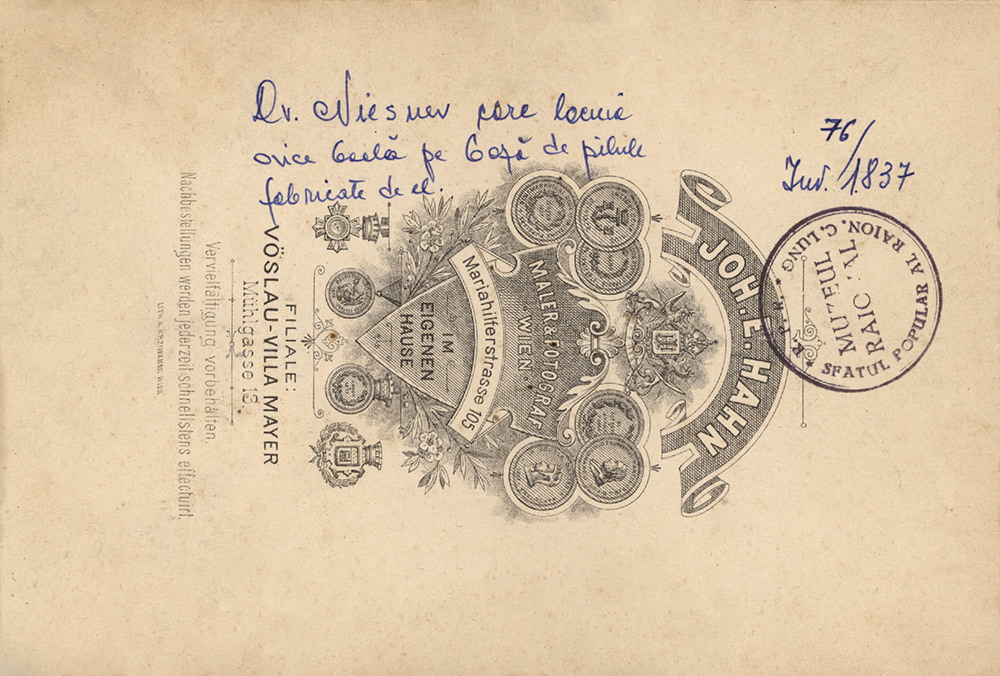 Dr. Niesner care locuia
orice boală pe bază de pilule
fabricate de el.
76/
Inv. 1837
R.P.R. * SFATUL POPULAR AL RAION. C. LUNG
MUZEUL
RAIONAL
JOH. E. HAHN
MALER & FOTOGRAF
WIEN
Mariahilferstrasse 105
IM
EIGENEN
HAUSE
FILIALE:
VÖSLAU-VILLA MAYER
Mühlgasse 13.
Vervielfältigung vorbehalten.
Nachbestellungen werden jederzeit schnellstens effectuirt.